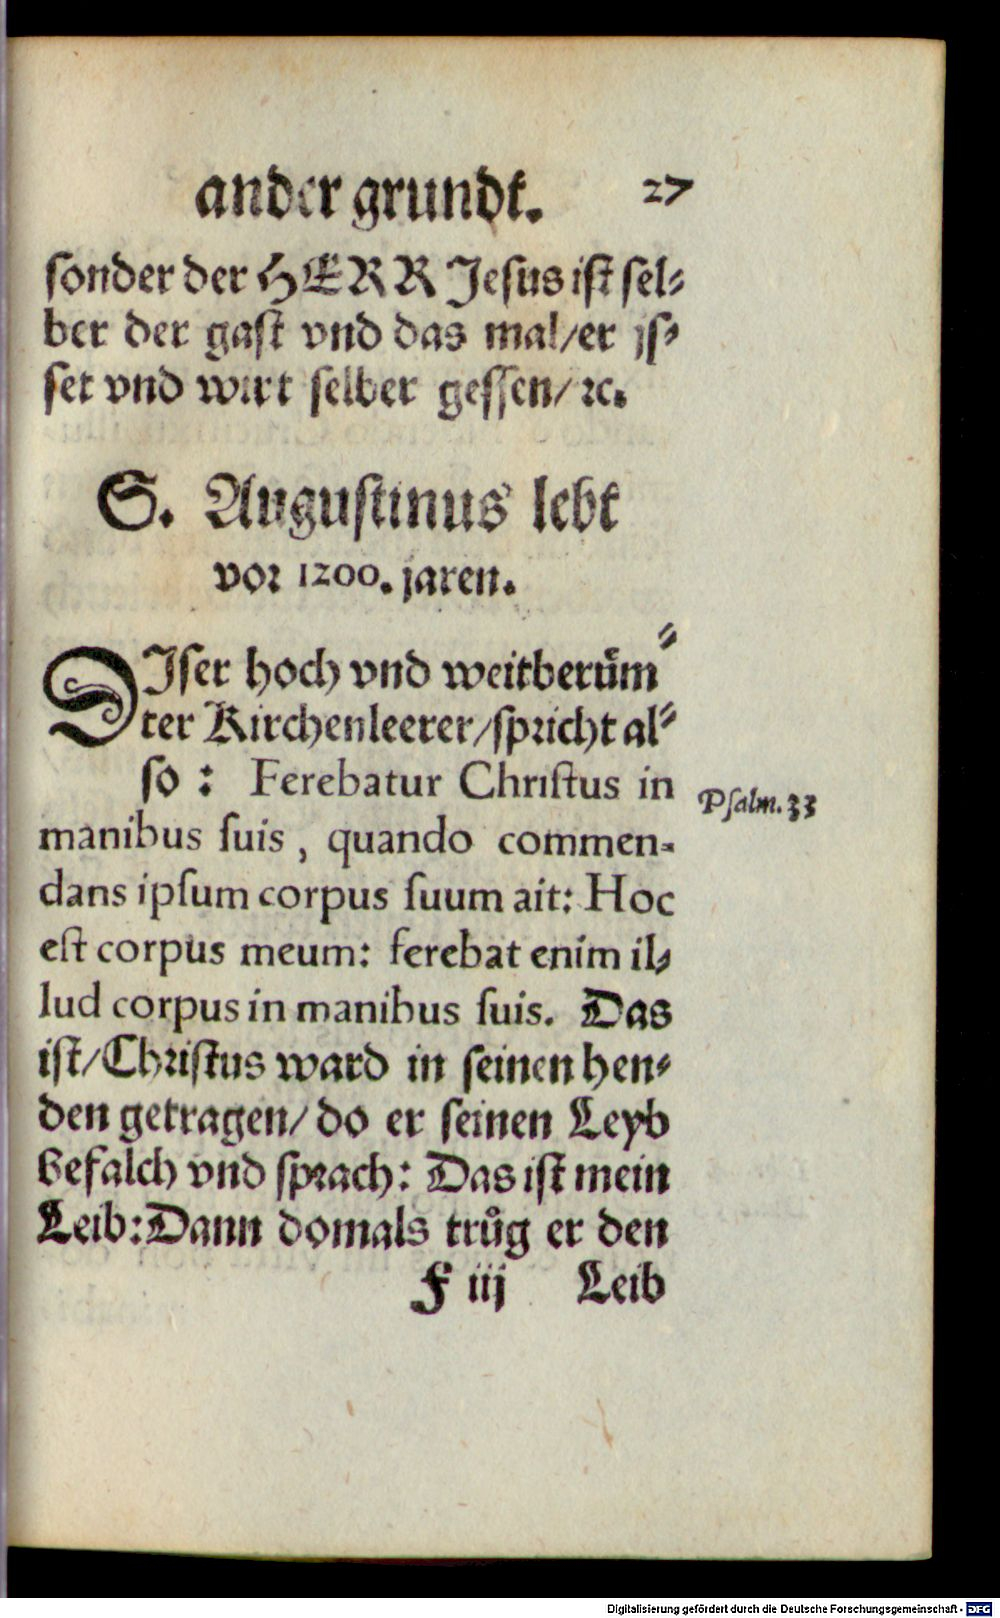 ander grundt. 27
sonder der HERR Jesus ist sel⸗
ber der gast vnd das mal/er js⸗
set vnd wirt selber gessen/ ꝛc.
S. Augustinus lebt
vor 1200. jaren.
DIser hoch vnd weitberům⸗
ter Kirchenleerer/spricht al⸗
so : Ferebatur Christus in
Psalm. 33
manibus ſuis , quando commen-
dans ipſum corpus ſuum ait: Hoc
eſt corpus meum: ferebat enim il⸗
lud corpus in manibus ſuis. Das
ist/Christus ward in seinen hen⸗
den getragen/ do er seinen Leyb
befalch vnd sprach: Das ist mein
Leib:Dann domals trůg er den
F iij Leib
Digitalisierung gefördert durch die Deutsche Forschungsgemeinschaft - DFG